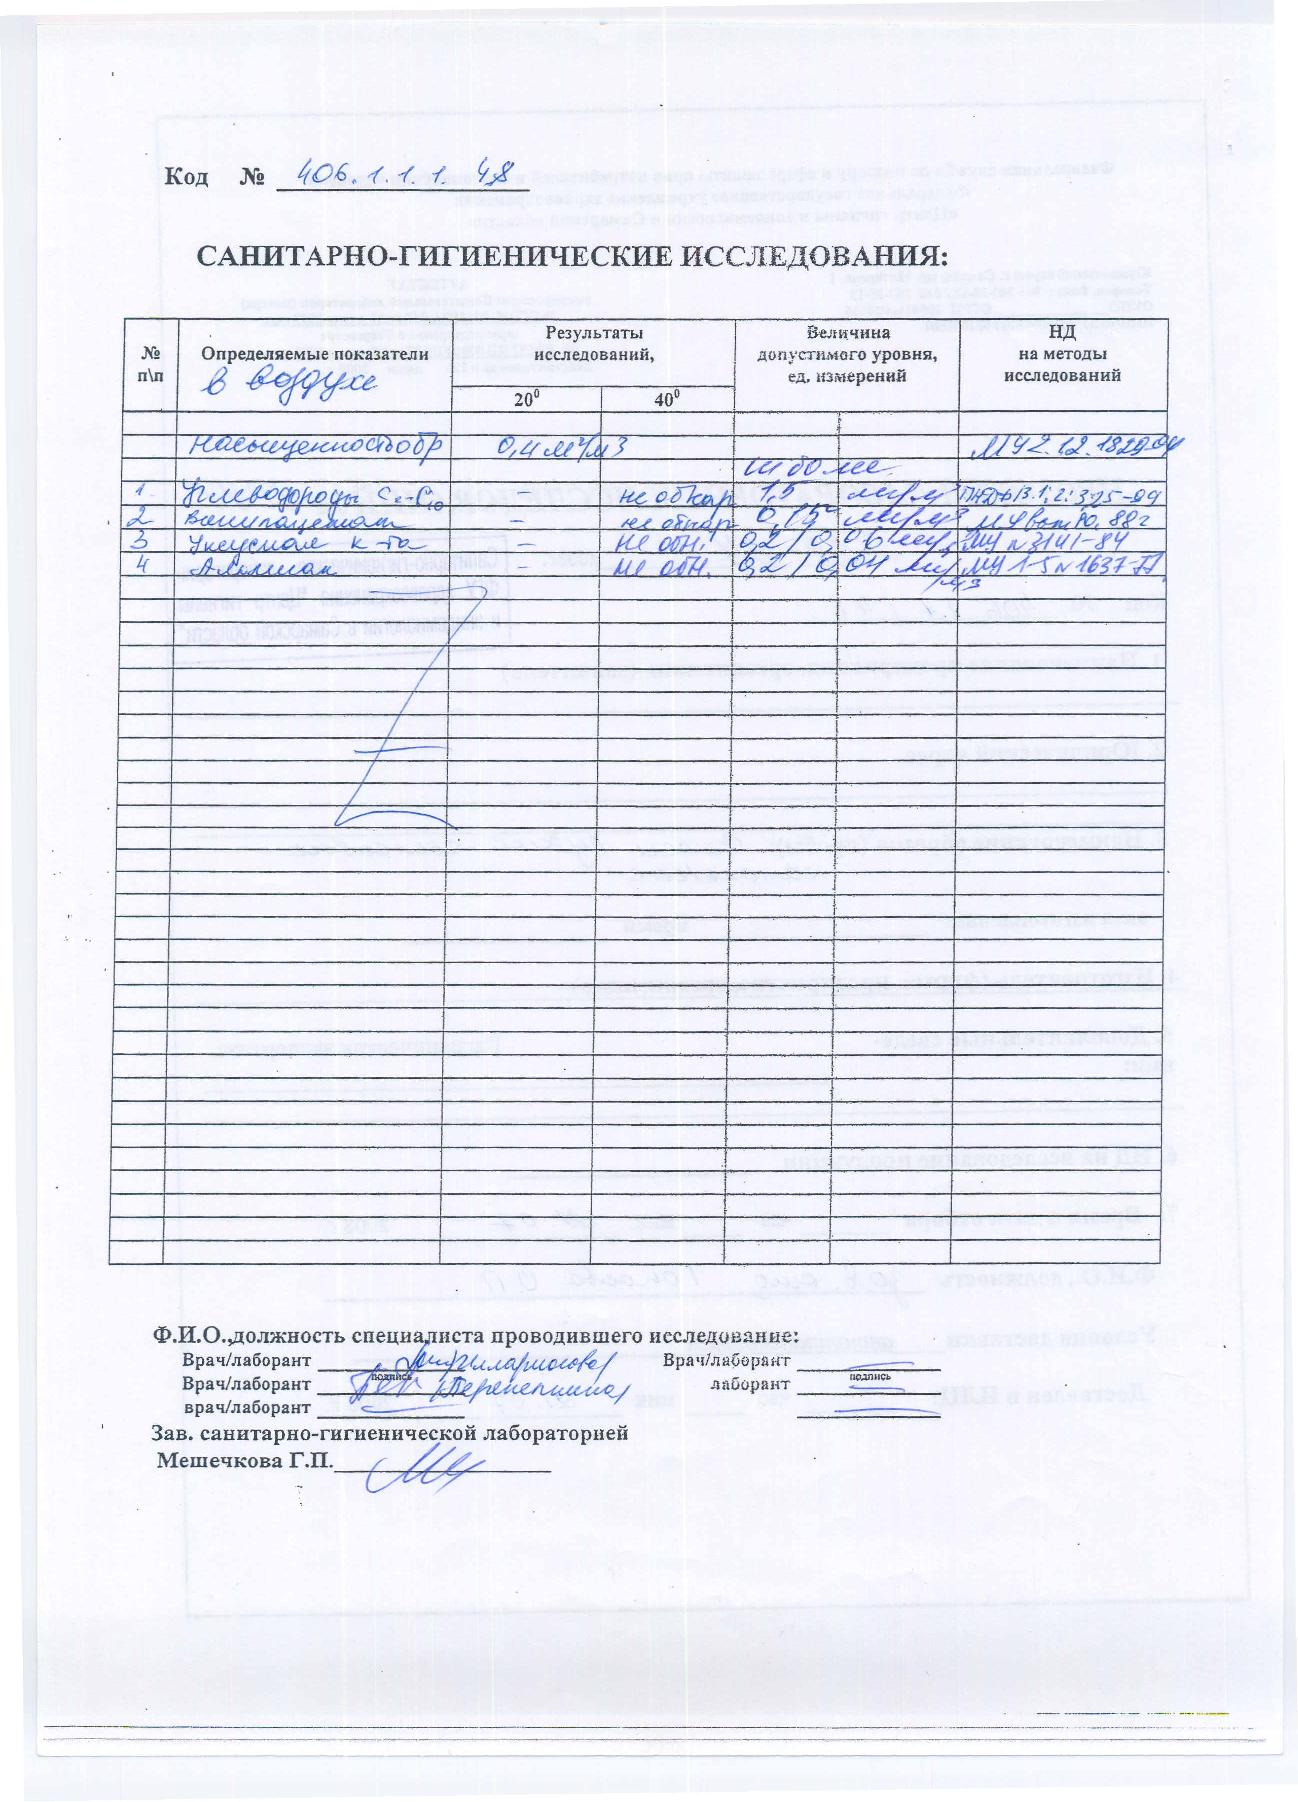 Код № 406.1.1.1. 48
САНИТАРНО-ГИГИЕНИЧЕСКИЕ ИССЛЕДОВАНИЯ:
№ п\п Определяемые показатели в воздухе Результаты исследований, Величина допустимого уровня, ед. измерений НД на методы исследований
20⁰ 40⁰
Насыщенность обр 0,4 м²/м3 МУ 2.1.2.1829-04
не более
1. Углеводороды – не обнар 1,5 мг/м³
2 Винилацетат – не обнар 0,15 мг/м³ МУ 88г
3 Уксусная к-та – не обн. 0,2/0,06 мг/ МУ №3141-84
4 Аммиак – не обн. 0,2/0,04 мг/м3 МУ 1-5 №1637-77.
Ф.И.О.,должность специалиста проводившего исследование:
Врач/лаборант Врач/лаборант
подпись подпись
Врач/лаборант лаборант
врач/лаборант
Зав. санитарно-гигиенической лабораторией
Мешечкова Г.П.